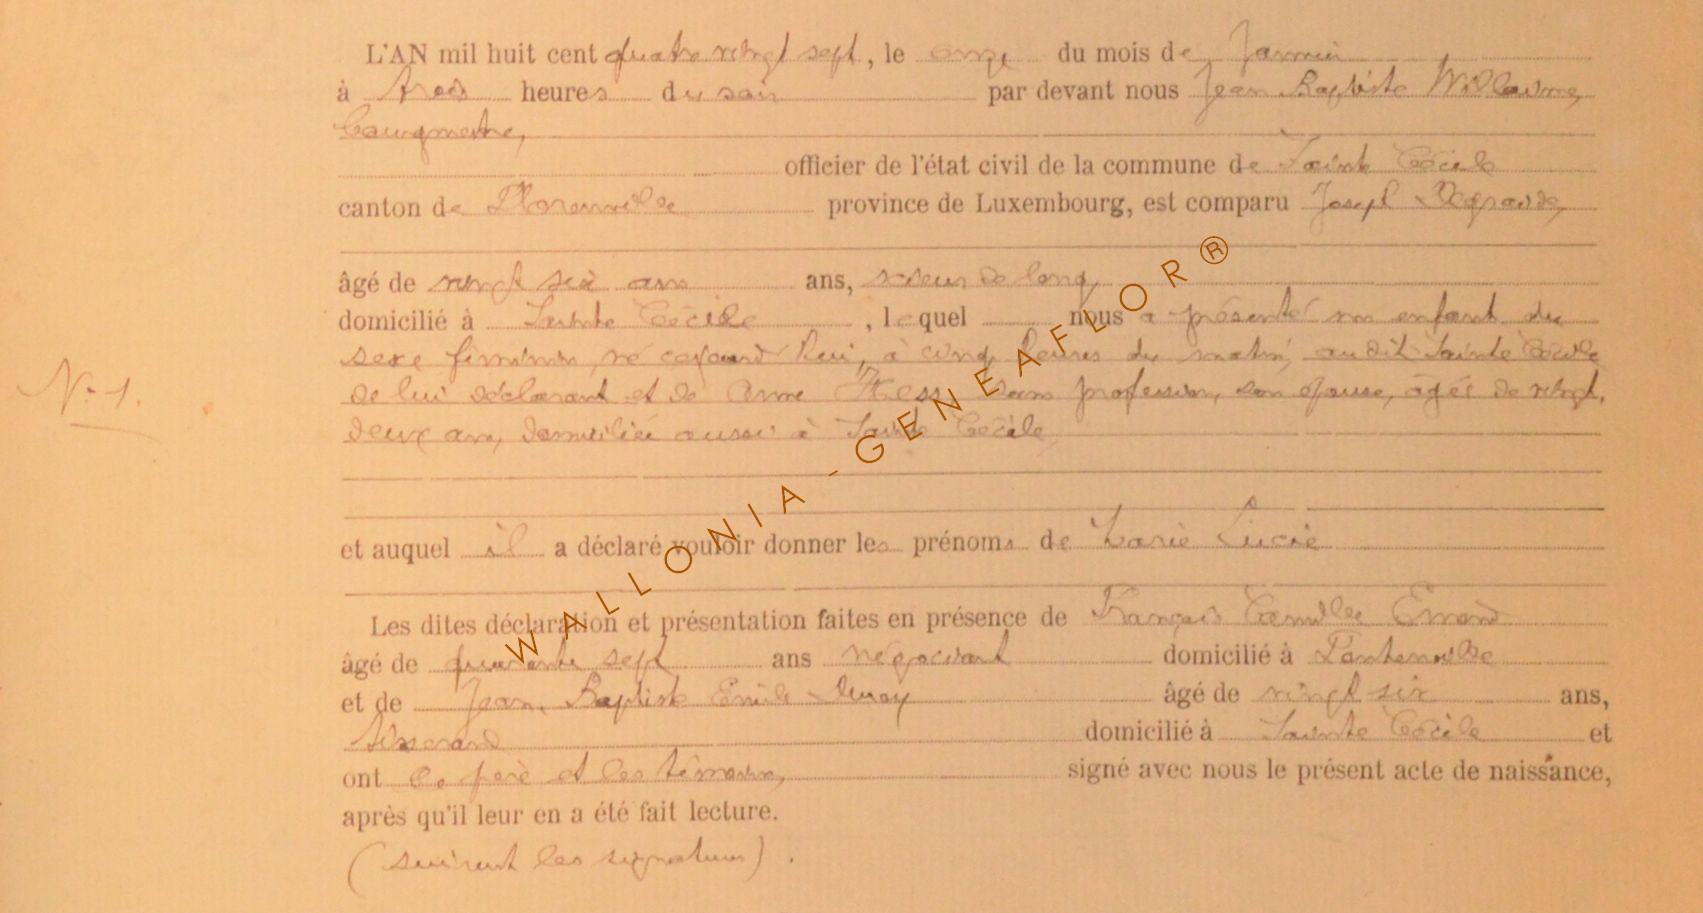 L'AN mil huit cent quatre vingt sept, le onze du mois de Janvier
à trois heures du soir par devant nous Jean Baptiste Willaume,
bourgmestre,
officier de l'état civil de la commune de Sainte Cécile
canton de Florenville province de Luxembourg, est comparu Joseph Degrande,
âgé de vingt six ans ans, scieur de long,
domicilié à Sainte Cécile, lequel nous a présenté un enfant du
sexe féminin, né cejourd'hui, à cinq heures du matin, audit Sainte Cécile
N° 1.
de lui déclarant et de Anne Hess sans profession, son épouse, âgée de vingt,
deux ans, domiciliée aussi à Sainte Cécile,
et auquel il a déclaré vouloir donner les prénoms de Marie Lucie
Les dites déclaration et présentation faites en présence de François Camille Errard
âgé de quarante sept ans négociant domicilié à Fontenoille
et de Jean Baptiste Emile âgé de vingt six ans,
tisserand domicilié à Sainte Cécile et
ont le père et les témoins, signé avec nous le présent acte de naissance,
après qu'il leur en a été fait lecture.
(suivent les signatures).
WALLONIA-GENEAFLOR®